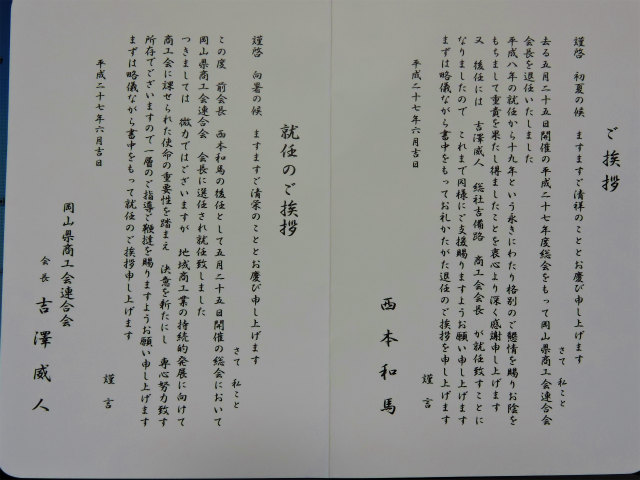 ご挨拶
謹啓 初夏の候 ますますご清祥のこととお慶び申し上げます
さて 私こと
去る五月二十五日開催の平成二十七年度総会をもって岡山県商工会連合会
会長を退任いたしました
平成八年の就任から十九年という永きにわたり格別のご懇情を賜りお陰を
もちまして重責を果たし得ましたことを衷心より深く感謝申し上げます
又 後任には 吉澤威人 総社吉備路 商工会会長 が就任致すことに
なりましたので これまで同様にご支援賜りますようお願い申し上げます
まずは略儀ながら書中をもってお礼かたがた退任のご挨拶を申し上げます
謹言
平成二十七年六月吉日
西本和馬
就任のご挨拶
謹啓 向暑の候 ますますご清栄のこととお慶び申し上げます
さて 私こと
この度 前会長 西本和馬の後任として五月二十五日開催の総会において
岡山県商工会連合会 会長に選任され就任致しました
つきましては 微力ではございますが 地域商工業の持続的発展に向けて
商工会に課せられた使命の重要性を踏まえ 決意を新たにし 専心努力致す
所存でございますので一層のご指導ご鞭撻を賜りますようお願い申し上げます
まずは略儀ながら書中をもって就任のご挨拶申し上げます
謹言
平成二十七年六月吉日
岡山県商工会連合会
会長 吉澤威人